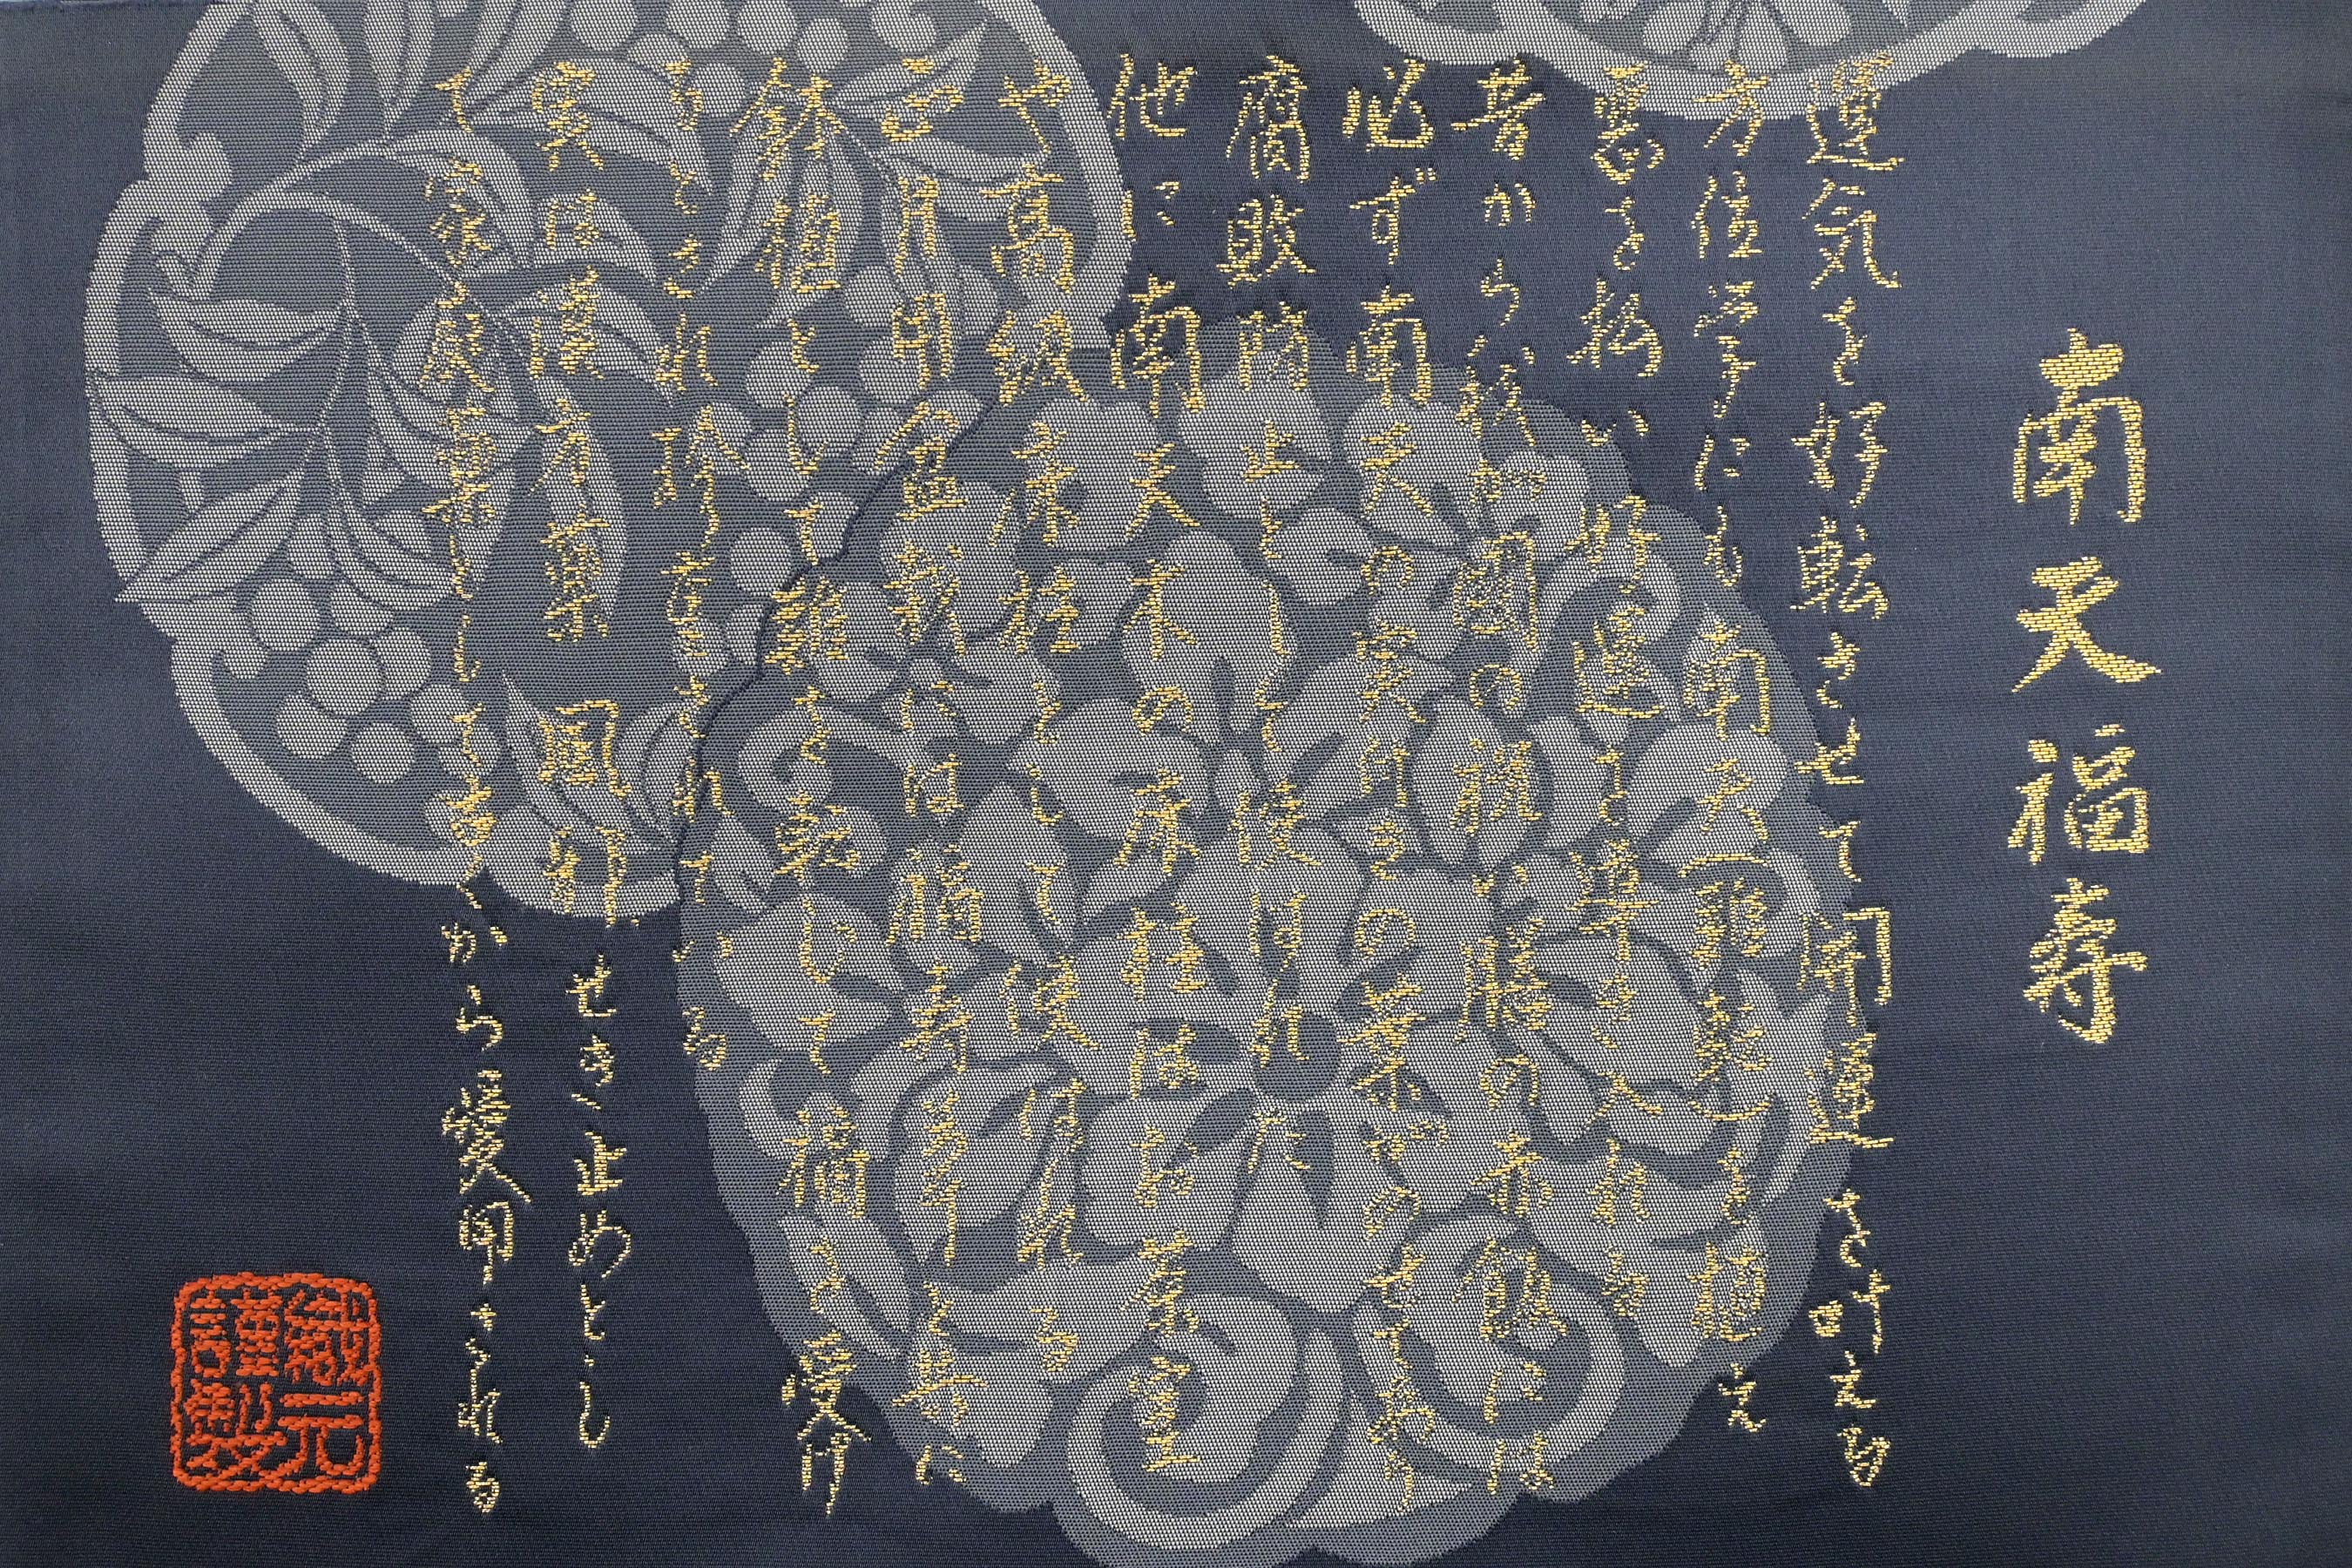 南天福寿
運気を好転させて開運を叶える
方位学にも南天(難転)を植え
悪を払い好運を導き入れる
昔から我が国の祝い膳の赤飯には
必ず南天の実付きの葉がのせてあり
腐敗防止として使はれた
他に南天木の床柱はお茶室
や高級床柱として使はれる
正月用盆栽には福寿草と共に
鉢植として難を転じて福を受け
るとされ珍重されている
実は漢方薬 風邪 せき止めとし
て家庭薬として古くから愛用される